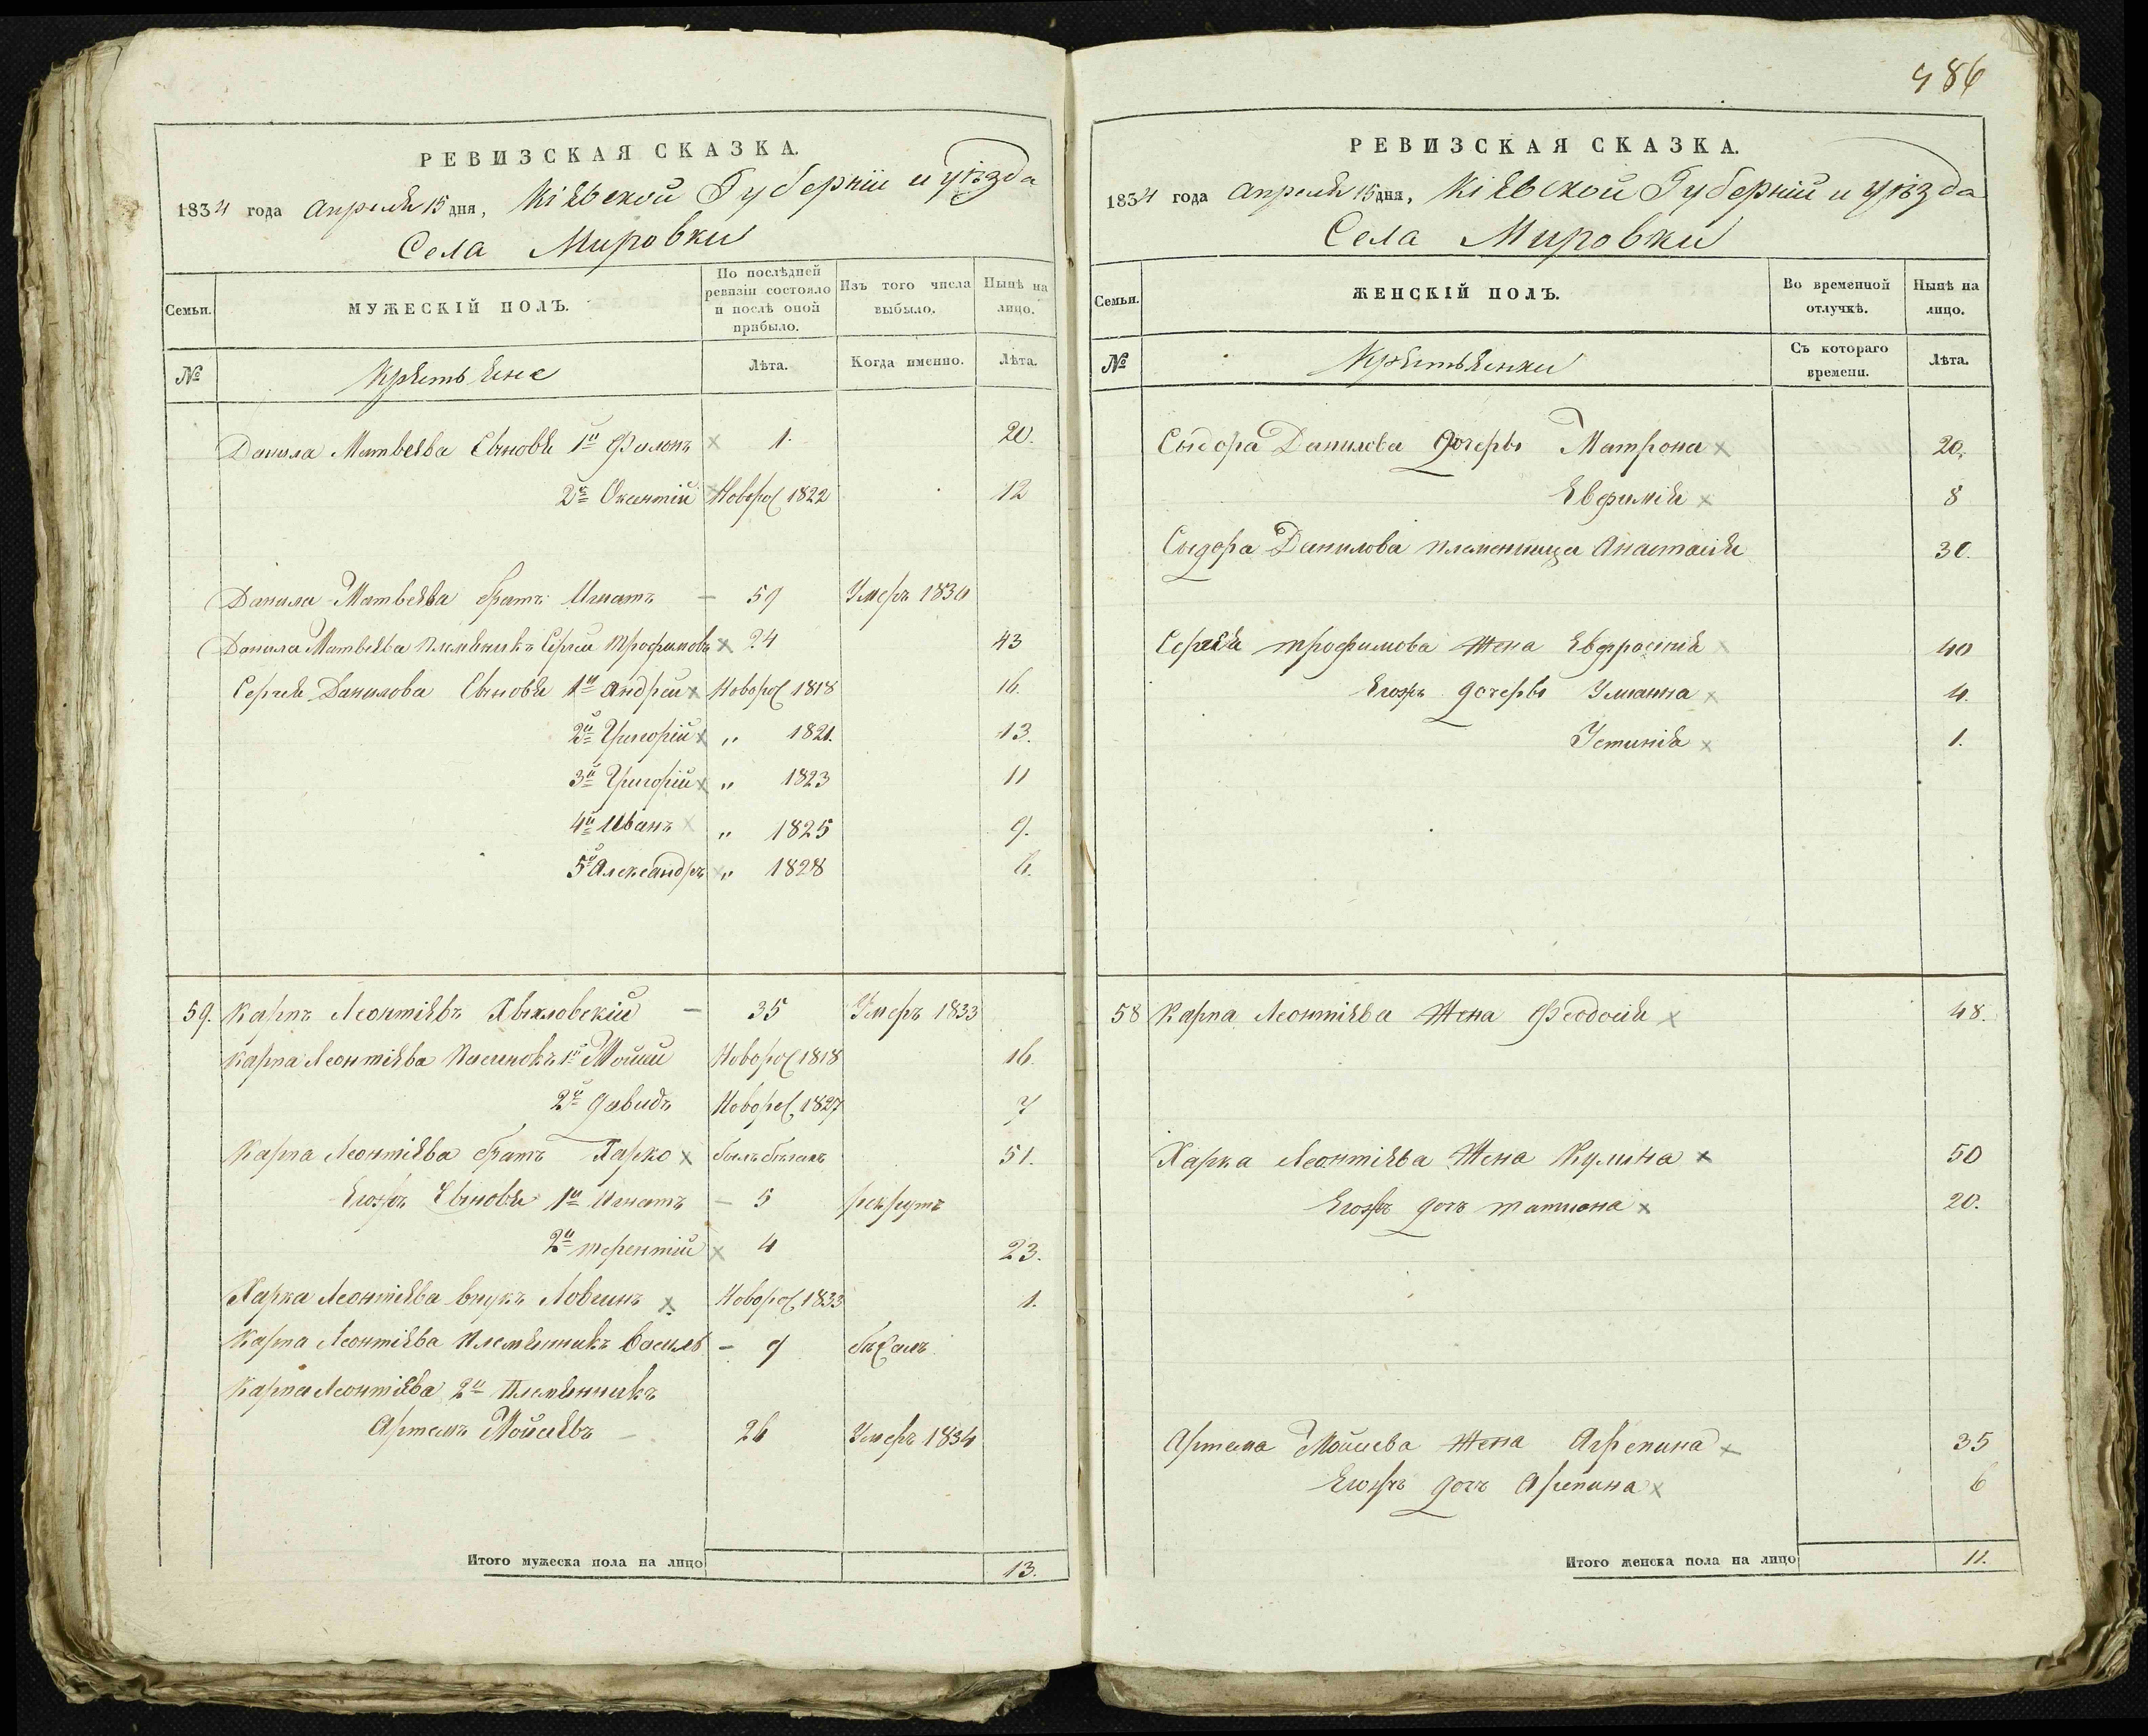 486
РЕВИЗСКАЯ СКАЗКА.
1834 года Апреля 15 дня, Кіевской Губерніи и уѣзда
Села Мировки
Семьи.
МУЖЕСКІЙ ПОЛЪ.
По послѣдней ревизіи состояло и послѣ оной прибыло.
Изъ того числа выбыло.
Нынѣ на лицо.
№
Крѣстьяне
Лѣта.
Когда именно.
Лѣта.
Данила Матвеѣва Сыновья 1й Филонъ 1. 20.
2й Новорож 1822 12
Данила Матвеѣва братъ Игнатъ — 59 Умеръ 1830
Данила Матвеѣва Племяникъ Сергѣй Трофимовъ 24 43
Сергѣя Данилова Сыновья 1й Андрей Новорож 1818 16.
2й Григорій " 1821. 13.
3й Григорій " 1823 11
4й Иванъ " 1825 9.
5й Александръ " 1828 6.
59. Карпъ Леонтіевъ Хвыловскій — 35 Умеръ 1833
Карпа Леонтіева Пасинокъ 1й Мойсей Новорож 1818 16.
2й Давидъ Новорож 1827 7
Карпа Леонтіева братъ Харко 51.
Егожъ Сыновья 1й Игнатъ — 5 рекрутъ
2й Терентій 4 23.
Харка Леонтіева внукъ Новорож 1833 1.
Карпа Леонтіева Племянникъ Василь — 9
Карпа Леонтіева 2й Племянникъ
Артемъ Мойсѣевъ — 26 Умеръ 1834
Итого мужеска пола на лицо 13.
РЕВИЗСКАЯ СКАЗКА.
1834 года Апреля 15 дня, Кіевской Губерніи и уѣзда
Села Мировки
Семьи.
ЖЕНСКІЙ ПОЛЪ.
Во временной отлучкѣ.
Нынѣ на лицо.
№
Крѣстьянки
Съ котораго времени.
Лѣта.
Сыдора Данилова дочеръ Матрона 20.
Евфимія 8
Сыдора Данилова племенница Анастасія 30.
Сергѣя Трофимова Жена Евфросинія 40
Егожъ дочеръ Ульяна 4.
Устинія 1.
58 Карпа Леонтіева Жена Феодосія 48.
Харка Леонтіева Жена Кулина 50
Егожъ дочъ Татиона 20.
Артема Мойсеева Жена Агрепина 35
Егожъ дочъ 6
Итого женска пола на лицо 11.